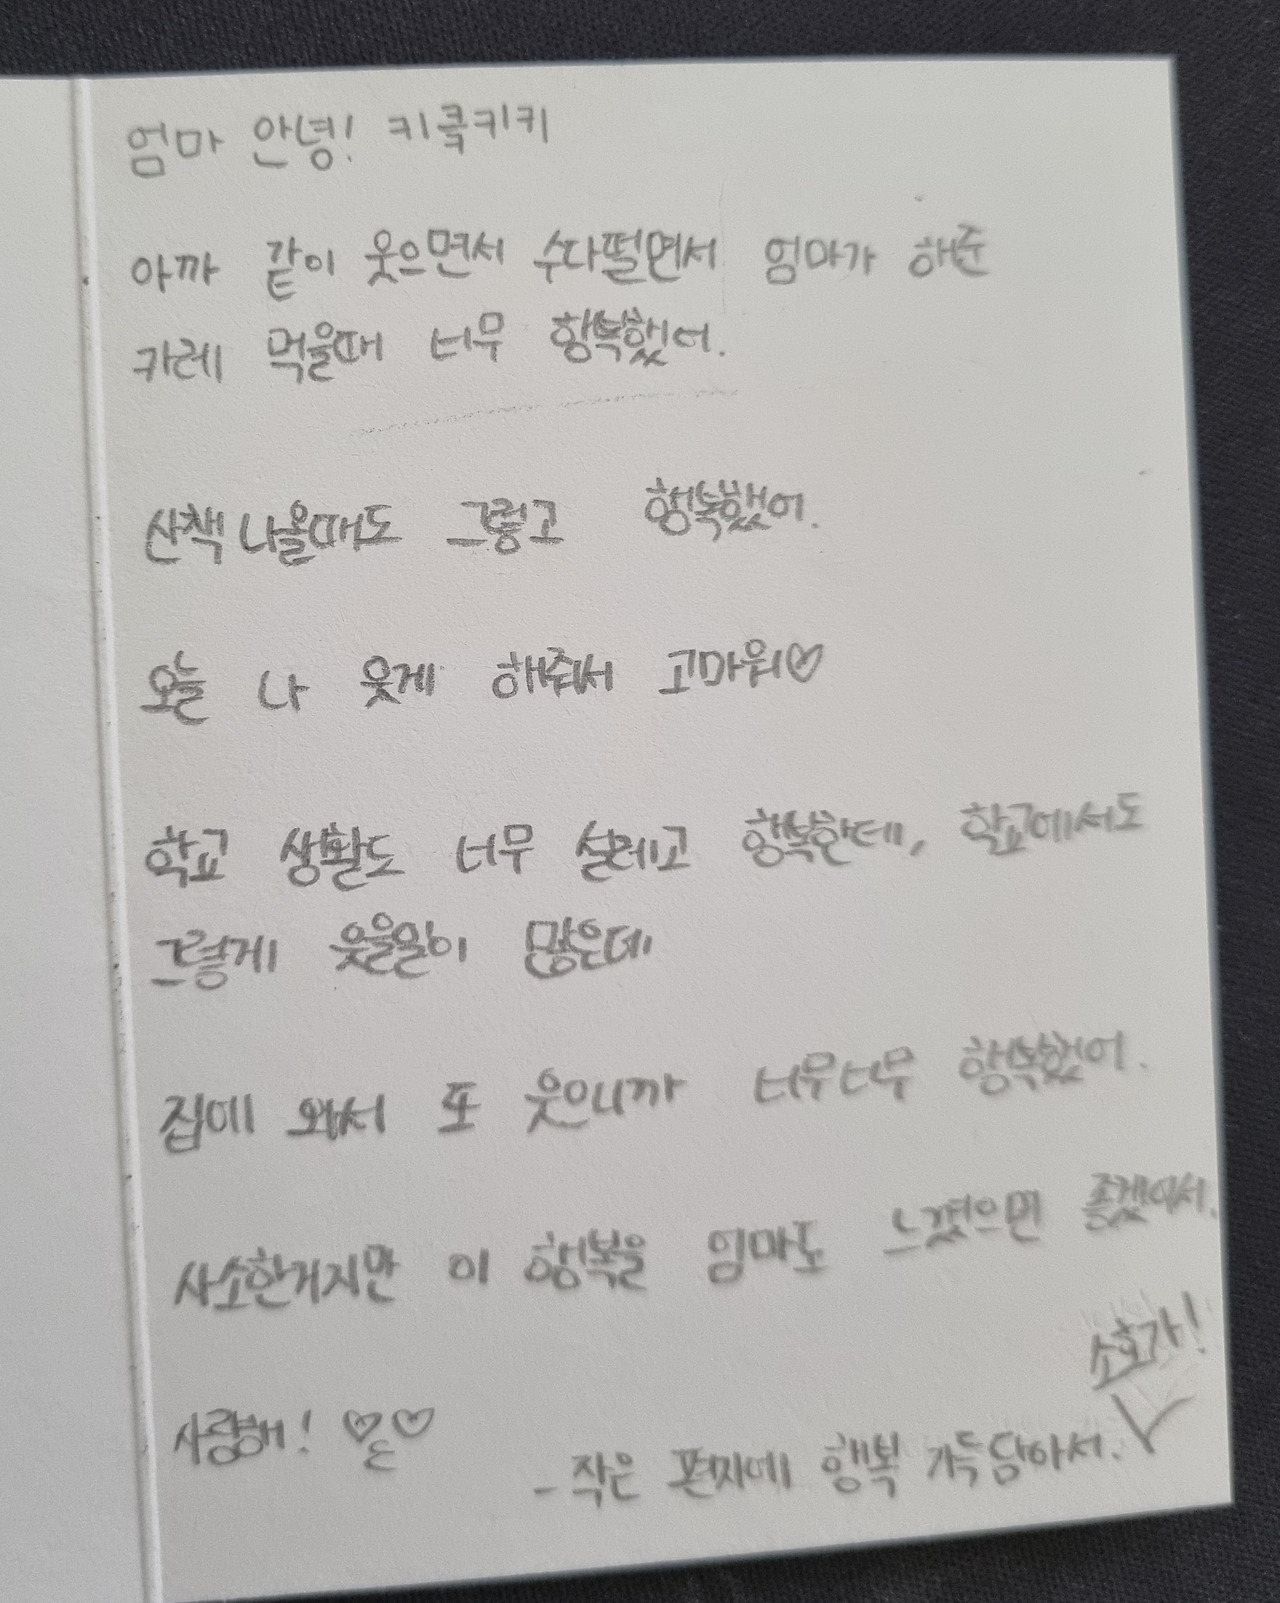 엄마 안녕! 키쿸키키
아까 같이 웃으면서 수다떨면서 엄마가 해준
카레 먹을때 너무 행복했어.
산책 나올때도 그렇고 행복했어.
오늘 나 웃게 해줘서 고마워♡
학교 생활도 너무 설레고 행복한데, 학교에서도
그렇게 웃을일이 많은데
집에 와서 또 웃으니까 너무너무 행복했어.
사소한거지만 이 행복을 엄마도 느꼈으면 좋겠어서.
사랑해! ♡ε♡
- 작은 편지에 행복 가득담아서.
소화가!